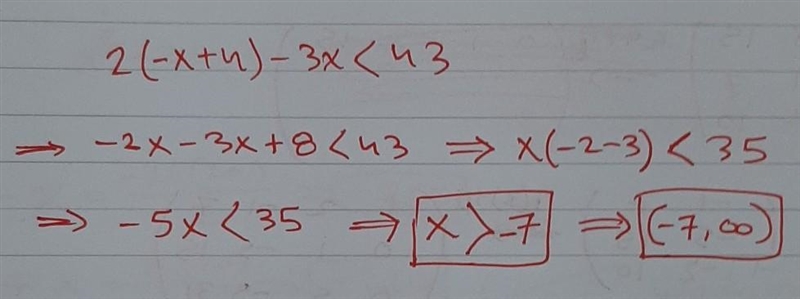 2(-x+4)-3x<43
⇒ -2x-3x+8<43 ⇒ x(-2-3)<35
⇒ -5x<35 ⇒ x>-7 ⇒ (-7,∞)